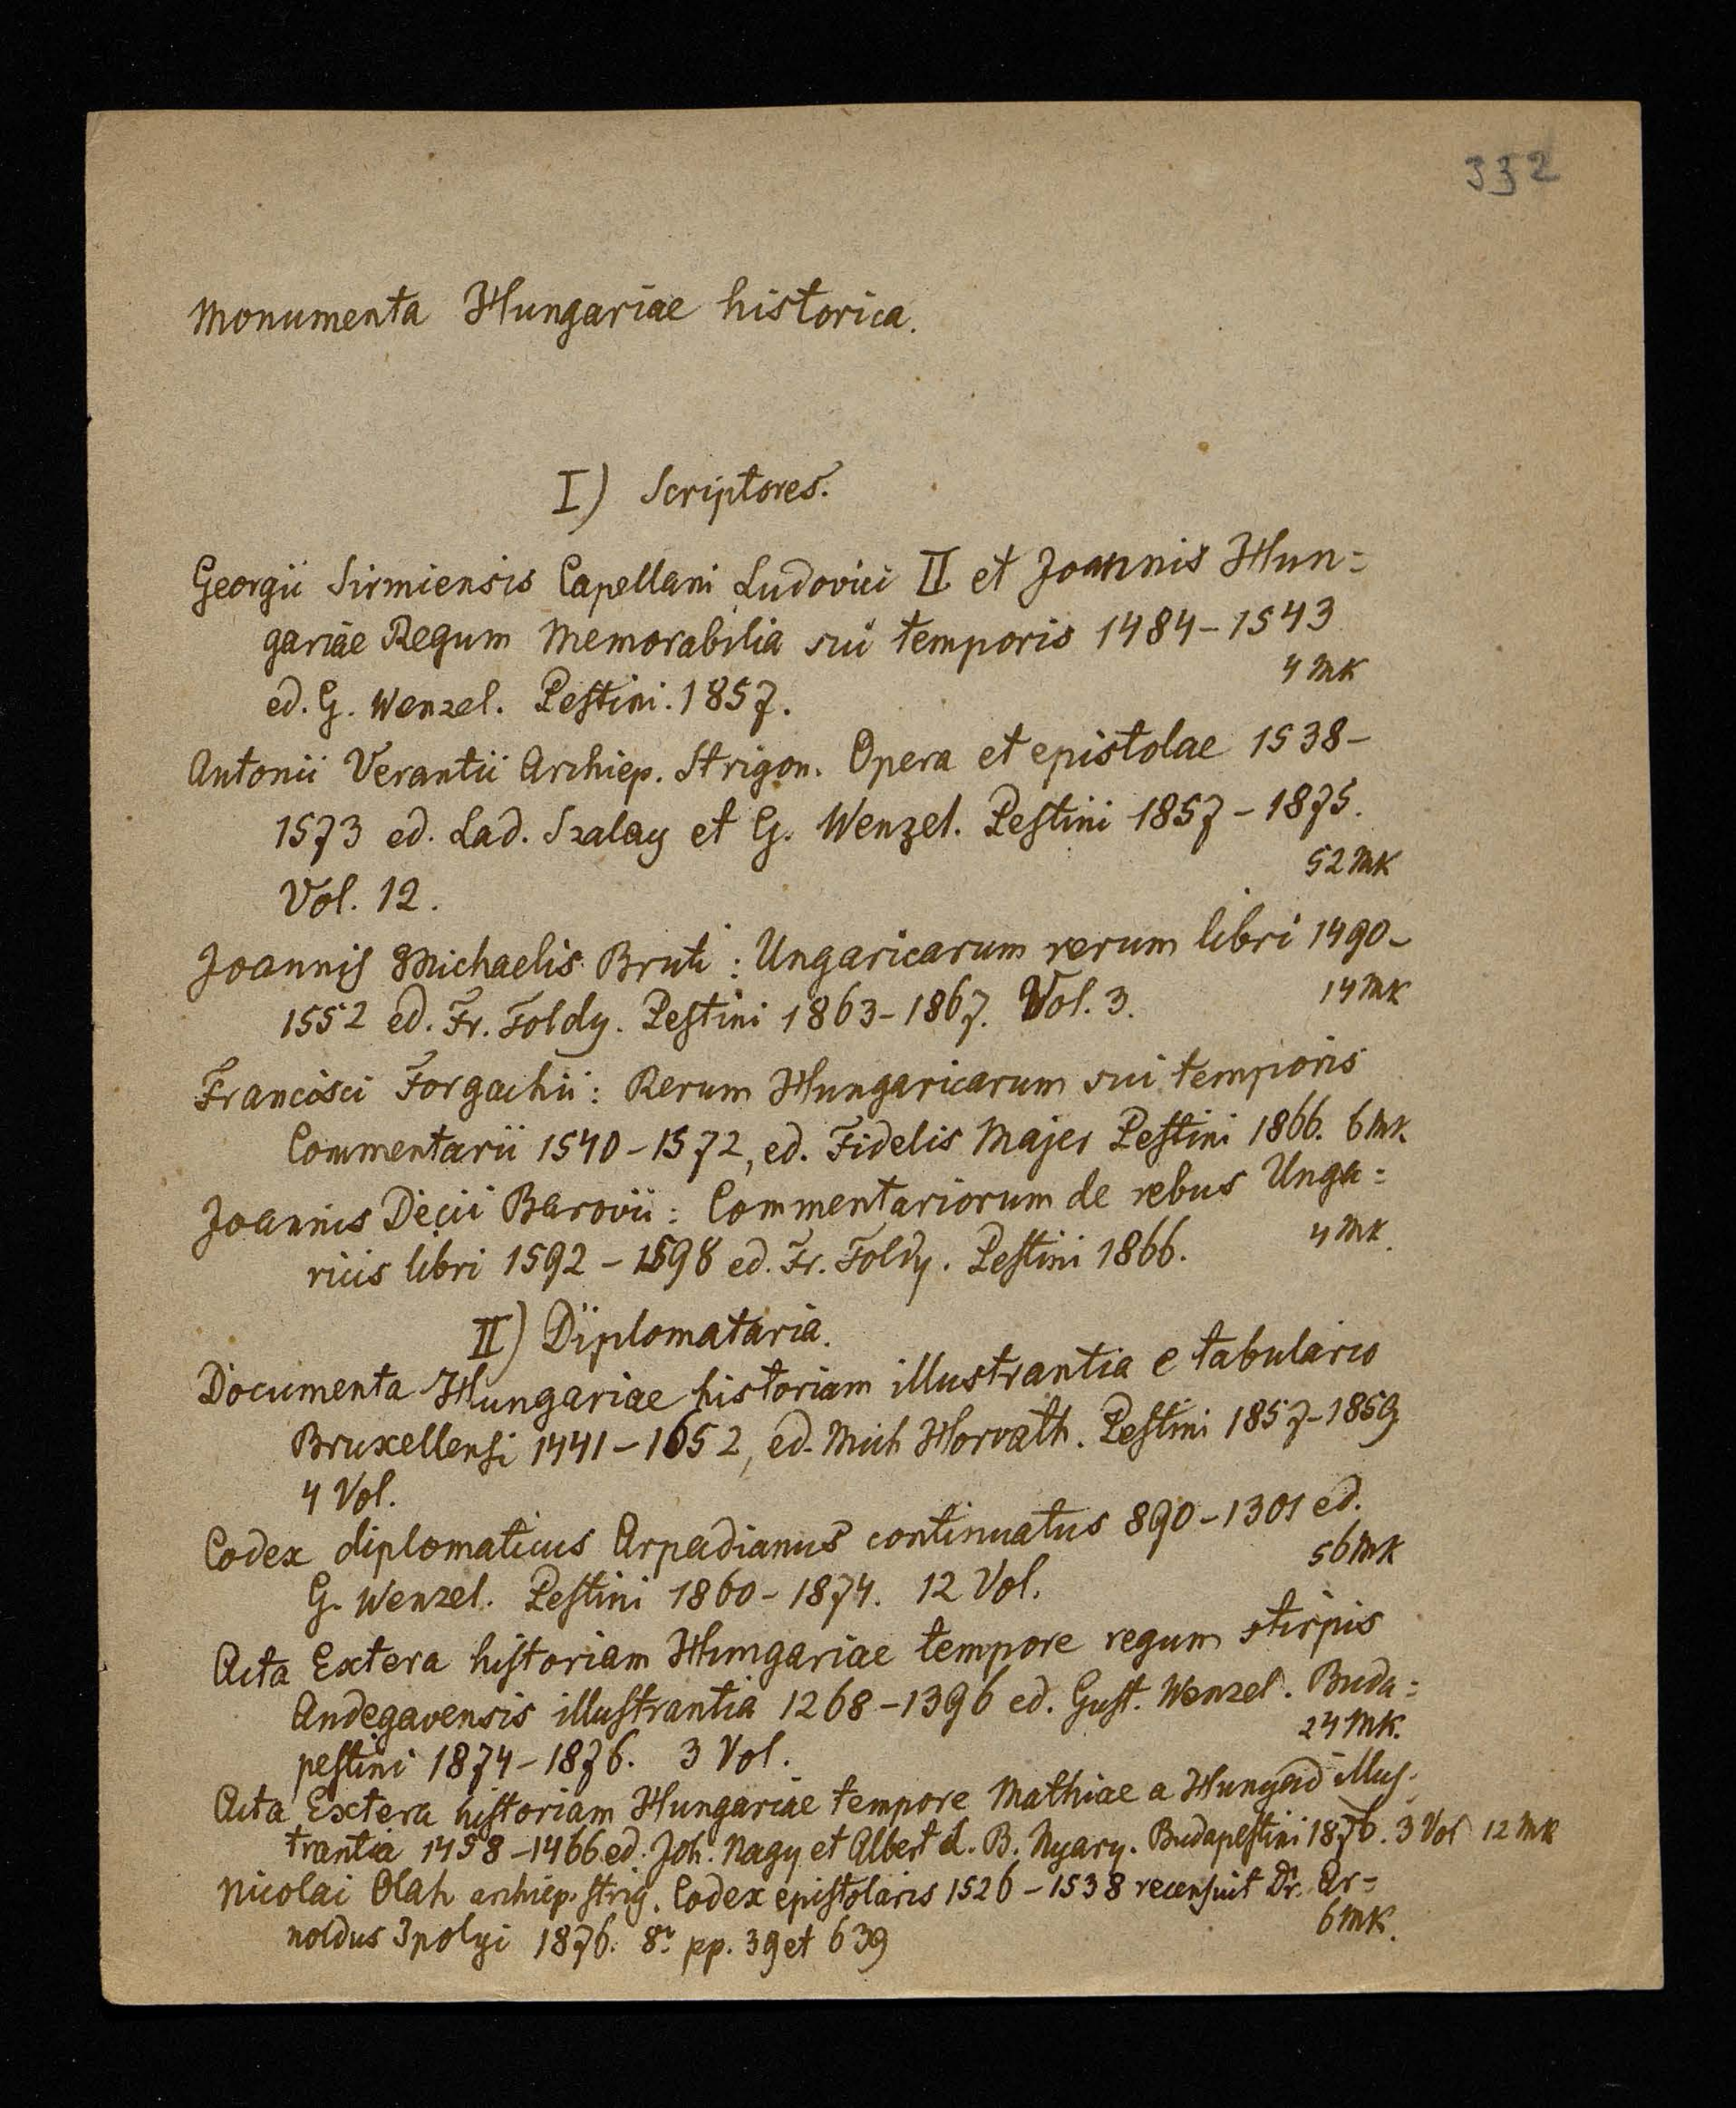 332
Monumenta Hungariae historica.
I) Scriptores.
Georgii Sirmiensis Capellani Ludovici II et Joannis Hun=
gariae Regum Memorabilia sui temporis 1484-1543
ed. G. Wenzel. Pestini. 1857. 4 Mk
Antonii Verantii Archiep. Strigon. Opera et epistolae 1538-
1573 ed. Lad. Szalay et G. Wenzel. Pestini 1857-1875.
Vol. 12. 52 Mk
Joannis Michaelis Bruti: Ungaricarum rerum libri 1490-
1552 ed. Fr. Foldy. Pestini 1863-1867. Vol. 3. 14 Mk
Francisci Forgachii: Rerum Hungaricarum sui temporis
Commentarii 1540-1572, ed. Fidelis Majer Pestini 1866. 6 Mk.
Joannis Decii Barovii: Commentariorum de rebus Unga=
ricis libri 1592-1598 ed. Fr. Foldy. Pestini 1866. 4 Mk.
II) Diplomataria.
Documenta Hungariae historiam illustrantia e tabulario
Bruxellensi 1441-1652, ed. Mich Horvath. Pestini 1857-1859
4 Vol.
Codex diplomaticus Arpadianus continuatus 890-1301 ed.
G. Wenzel. Pestini 1860-1874. 12 Vol. 56 Mk
Acta Extera historiam Hungariae tempore regum stirpis
Andegavensis illustrantia 1268-1396 ed. Gust. Wenzel. Buda=
pestini 1874-1876. 3 Vol. 24 Mk.
Acta Extera historiam Hungariae tempore Mathiae a Hunyad illus-
trantia 1458-1466 ed. Joh. Nagy et Albert d. B. Nyary. Budapestini 1876. 3 Vol 12 Mk
Nicolai Olah archiep. strig. Codex epistolaris 1526-1538 recensuit Dr. Ar=
noldus Ipolyi 1876. 8r. pp. 39 et 639 6 Mk.